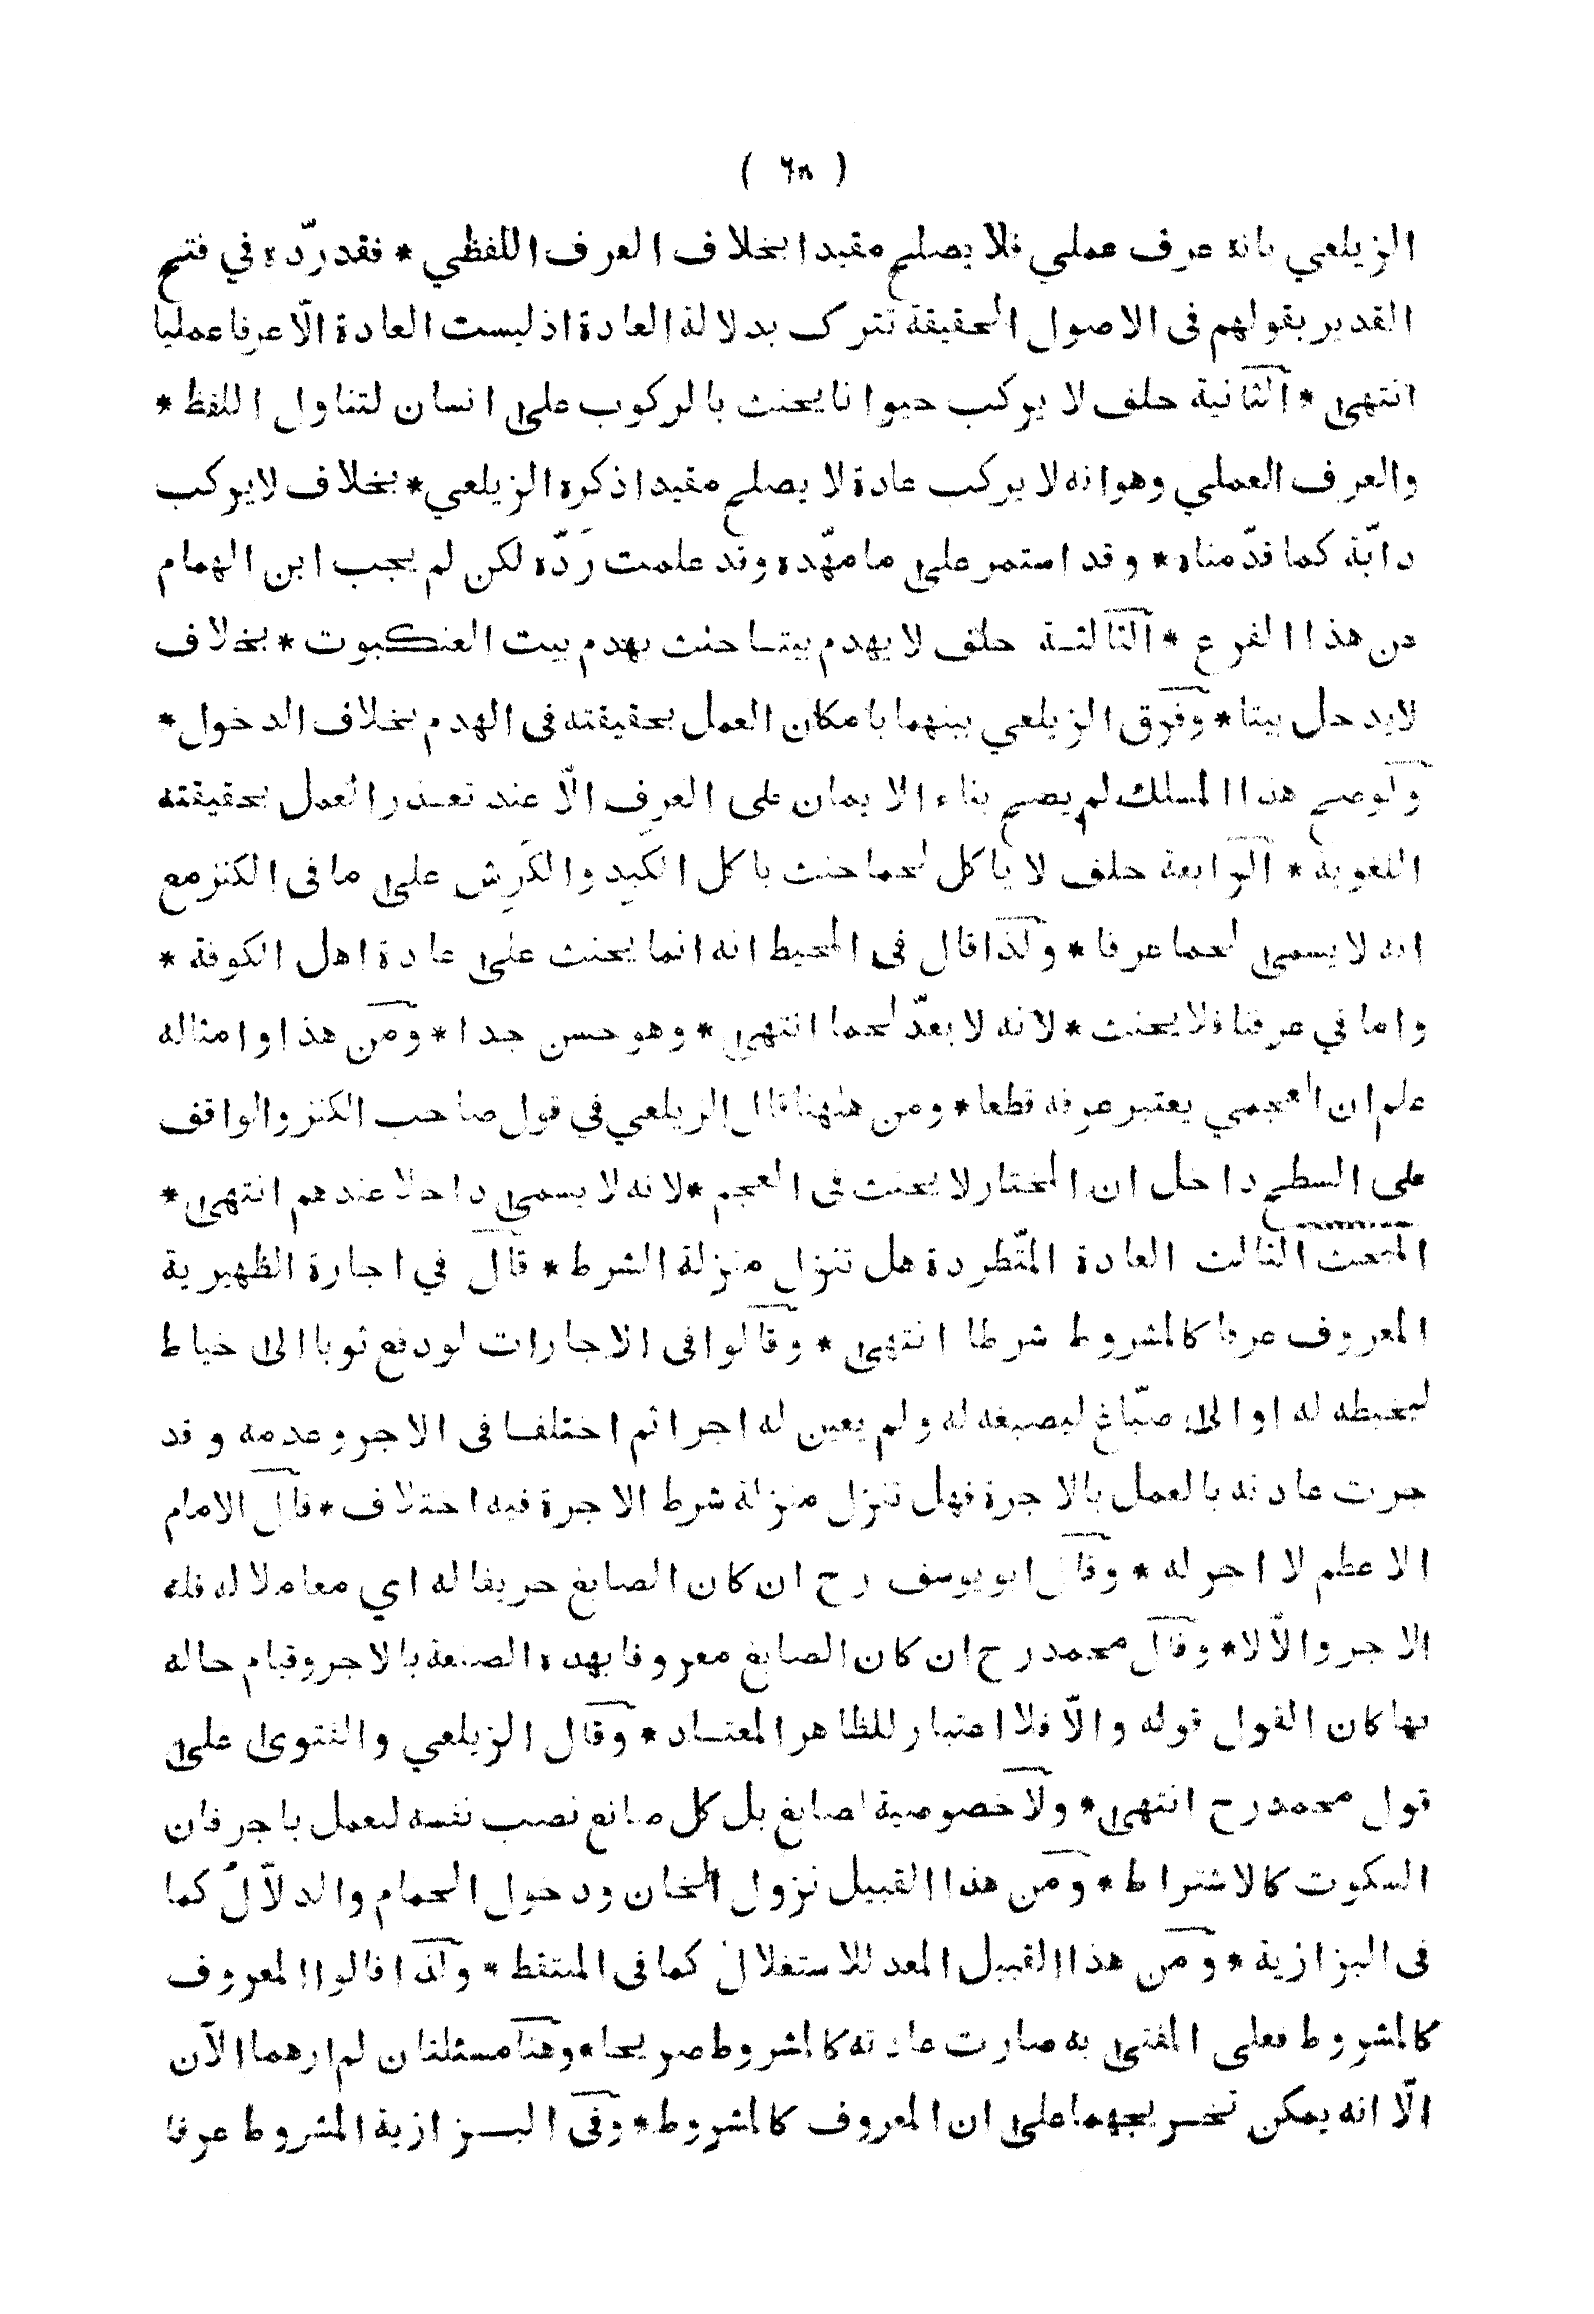 ( ٦٨ )
الزيلعي بانه عرف عملي فلا يصلح مقيدا بخلاف العرف اللفظي * فقد ردّه في فتح
القدير بقولهم فى الاصول الحقيقة تترك بدلالة العادة اذ ليست العادة الّا عرفا عمليا
انتهىٰ * الثانية حلف لا يركب حيوانا يحنث بالركوب علىٰ انسان لتناول اللفظ *
والعرف العملي وهو انه لا يركب عادة لا يصلح مقيدا ذكره الزيلعي * بخلاف لا يركب
دابّة كما قدّمناه * وقد استمر علىٰ ما مهّده وقد علمت رَدّه لكن لم يجب ابن الهمام
من هذا الفرع * الثالثة حلف لا يهدم بيتا حنث بهدم بيت العنكبوت * بخلاف
لا يدخل بيتا * وفرق الزيلعي بينهما بامكان العمل بحقيقته فى الهدم بخلاف الدخول *
ولو صح هذا المسلك لم يصح بناء الايمان على العرف الّا عند تعذر العمل بحقيقته
اللغوية * الرابعة حلف لا ياكل لحما حنث باكل الكبِد والكَرِش علىٰ ما فى الكنز مع
انه لا يسمىٰ لحما عرفا * ولذا قال فى المحيط انه انما يحنث علىٰ عادة اهل الكوفة *
واما في عرفنا فلا يحنث * لانه لا يعدّ لحما انتهىٰ * وهو حسن جدا * ومن هذا وامثاله
علم ان العجمي يعتبر عرفه قطعا * ومن هٰهنا قال الزيلعي في قول صاحب الكنز والواقف
على السطح داخل ان المختار لا يحنث فى العجم * لانه لا يسمىٰ داخلا عندهم انتهىٰ *
المبحث الثالث العادة المطّردة هل تنزل منزلة الشرط * قال في اجارة الظهيرية
المعروف عرفا كالمشروط شرطا انتهىٰ * وقالوا فى الاجارات لو دفع ثوبا الىٰ خياط
ليخيطه له او الىٰ صبّاغ ليصبغه له ولم يعين له اجرا ثم اختلفا فى الاجر وعدمه وقد
جرت عادته بالعمل بالاجرة فهل تنزل منزلة شرط الاجرة فيه اختلاف * قال الامام
الاعظم لا اجر له * وقال ابو يوسف رح ان كان الصابغ حريفا له اي معاملا له فله
الاجر والّا لا * وقال محمد رح ان كان الصابغ معروفا بهذه الصنعة بالاجر وقيام حاله
بها كان القول قوله والّا فلا اعتبار للظاهر المعتاد * وقال الزيلعي والفتوىٰ علىٰ
قول محمد رح انتهىٰ * ولا خصوصية لصابغ بل كل صانع نصب نفسه لعمل باجر فان
السكوت كالاشتراط * ومن هذا القبيل نزول الخان ودخول الحمام والدلّال كما
فى البزازية * ومن هذا القبيل المعد للاستغلال كما فى الملتقط * ولذا قالوا المعروف
كالمشروط فعلى المفتىٰ به صارت عادته كالمشروط صريحا * وهنا مسئلتان لم ارهما الآن
الّا انه يمكن تخريجهما علىٰ ان المعروف كالمشروط * وفى البزازية المشروط عرفا